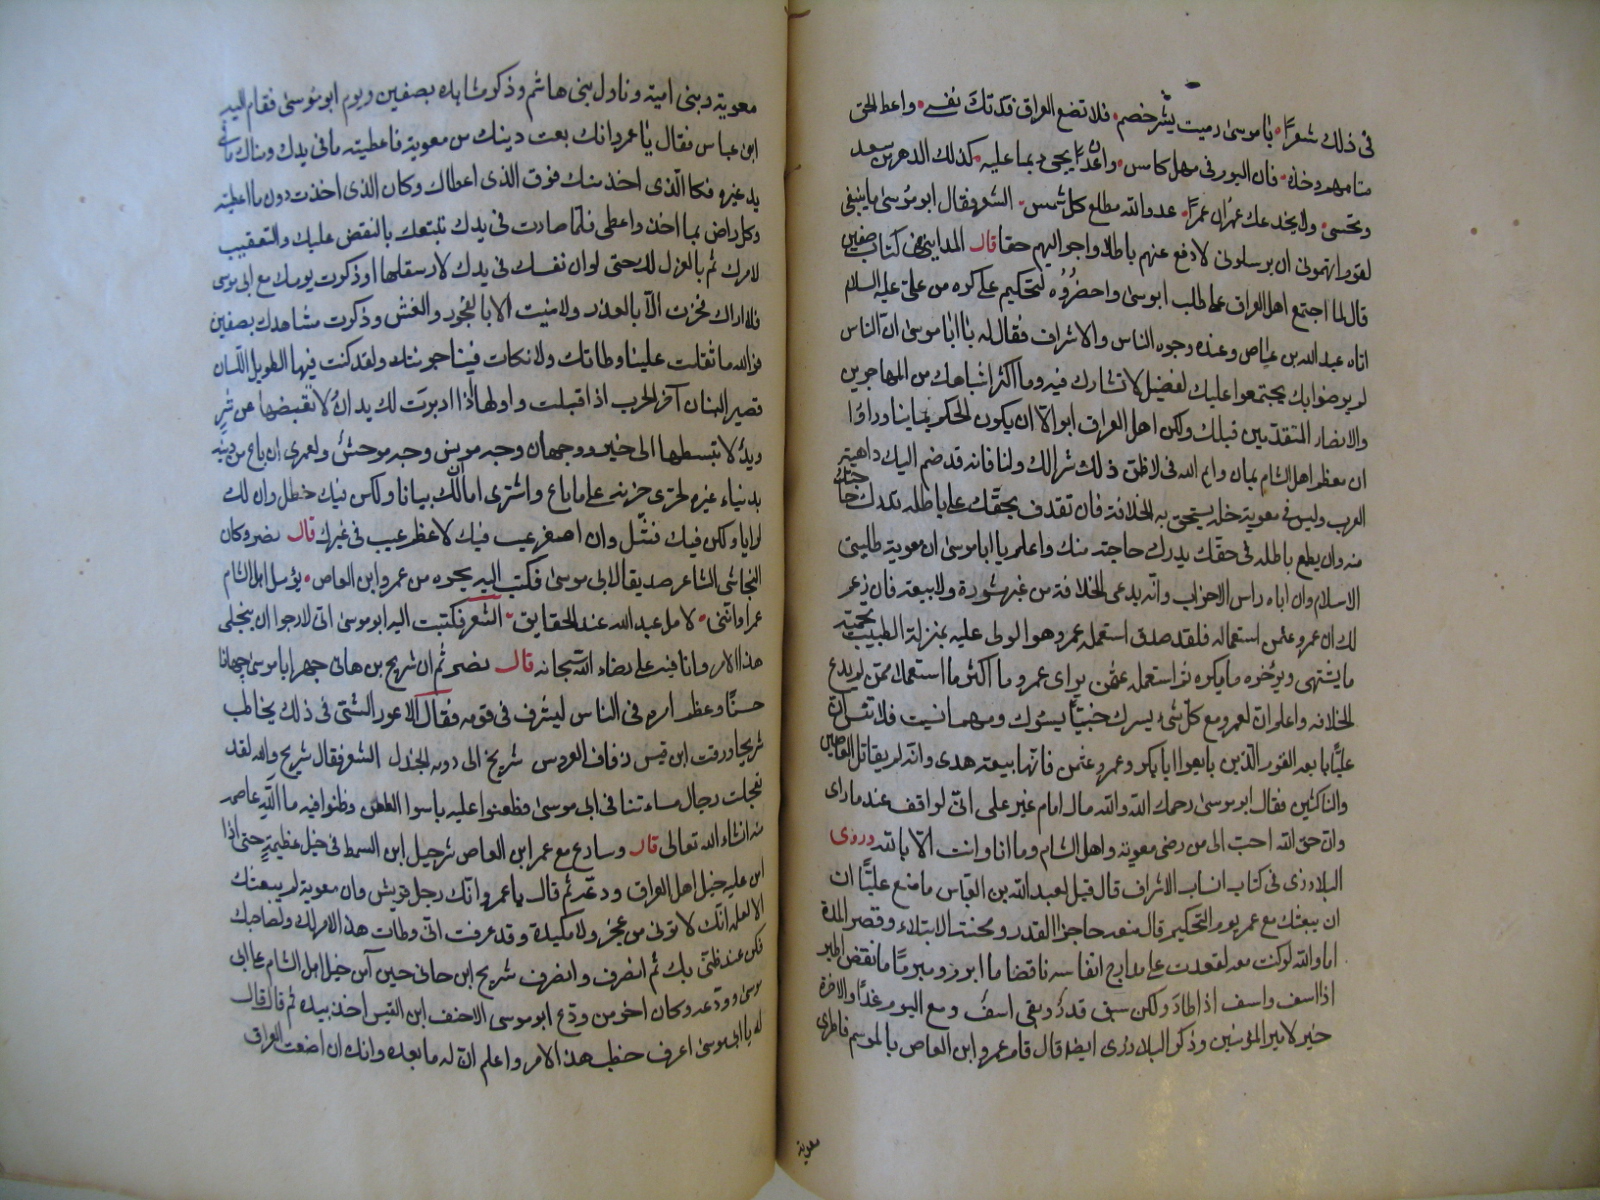 في ذلك شعرًا يا موسى رميت بشر خصم فلا تضع العراق فدتك نفسي واعط الحق
شامهم وخذه فان اليوم في مهل كامس وان غدا يجي بما عليه كذلك الدهر من سعد
ونحس ولا يخدعك عمرو ان عمرا عدو الله مطلع كل شمس الشعر فقال ابو موسى ما ينبغي
لقوم اتهموني ان يرسلوني لادفع عنهم باطلا واجر اليهم حقا قال المدايني في كتاب صفين
قال لما اجتمع اهل العراق على طلب ابو موسى واحضروه للتحكيم على كره من علي عليه السلام
اتاه عبد الله بن عباس وعنده وجوه الناس والاشراف فقال له يا ابا موسى ان الناس
لم يرضوا بك يجتمعوا عليك لفضل لا تشارك فيه وما اكثر اشباهك من المهاجرين
والانصار المتقدمين قبلك ولكن اهل العراق ابوا الا ان يكون الحكم يمانيا وراوا
ان معظم اهل الشام يمان وايم الله اني لاظن ذلك شرا لك ولنا فانه قد ضم اليك داهية
العرب وليس في معوية خلة يستحق به الخلافة فان تقذف بحقك على باطله تدرك حاجتك
منه وان يطمع باطله في حقك يدرك حاجته منك واعلم يا ابا موسى ان معوية طليق
الاسلام وان اباه راس الاحزاب وانه يدعى الخلافة من غير شورة ولا بيعة فان زعم
لك ان عمر وعثمن استعماله فلقد صدق استعمله عمر وهو الوالي عليه بمنزلة الطبيب يحميه
ما يشتهي ويوجره ما يكره ثم استعمله عثمن براى عمر وما اكثر ما استعملا ممن لم يدع
الخلافه واعلم ان لعمرو مع كل شيء يسرك خبيئا يسوك ومهما نسيت فلا تنس ان
عليا بايعه القوم الذين بايعوا ابابكر وعمر وعثمن فانها بيعة هدى وانه لم يقاتل العاصين
والناكثين فقال ابو موسى رحمك الله والله مال امام غير علي اني لواقف عند ما راى
وان حق الله احب الى من رضى معوية واهل الشام وما انا وانت الا بالله وروى
البلاذري في كتاب انساب الاشراف قال قيل لعبد الله بن العباس ما منع عليا ان
ان يبعثك مع عمر يوم التحكيم قال منعه حاجز القدر ومحنة الابتلاء وقصر المدة
اما والله لو كنت معه لقعدت على مدارج انفاسه ناقضا ما ابرم ومبرما ما نقض اطير
اذا اسف واسف اذا طار ولكن سبق قدر وبقي اسف ومع اليوم غدا والاخرة
خير لامير المؤمنين وذكر البلاذري ايضا قال قام عمرو ابن العاص بالموسم فاطرى
معوية
معوية وبني امية وناول بني هاشم وذكر مشاهده بصفين ويوم ابو موسى فقام اليه
ابن عباس فقال يا عمرو انك بعت دينك من معوية فاعطيته ما في يدك ومناك ما في
يد غيره فكا الذى اخذ منك فوق الذى اعطاك وكان الذى اخذت دون ما اعطيته
وكل راض بما اخذ واعطى فلما صارت في يدك تتبعك بالنقض عليك والتعقيب
لامرك ثم بالعزل لك حتى لو ان نفسك في يدك لارسلتها وذكرت يومك مع ابي موسى
فلا اراك فخرت الا بالغدر ولا منيت الا بالفجور والغش وذكرت مشاهدك بصفين
فوالله ما ثقلت علينا وطاتك ولا نكات فينا جراتك ولقد كنت فيها الطويل اللسان
قصير البنان آخر الحرب اذا اقبلت واولها اذا ادبرت لك يدان لا تقبضها عن شر
ويد لا تبسطها الى خير ووجهان وجه مونس ووجه موحش ولعمرى ان باع من دينه
بدنياء غيره لحرى حزنه على ما باع واشترى اما ان لك بيانا ولكن فيك خطل وان لك
لرايا ولكن فيك فشل وان اصغر عيب فيك لاعظم عيب في غيرك قال نصر وكان
النجاشي الشاعر صديقا لابي موسى فكتب اليه يحذره من عمرو ابن العاص يؤمل اهل الشام
عمرا وانني لامل عبد الله عند الحقايق الشعر فكتب اليه ابو موسى اني لارجوا ان ينجلى
هذا الامر وانا فيه على رضاء الله سبحانه قال نصر ثم ان شريح بن هاني جهز ابا موسى جهازا
حسنا وعظم امره في الناس ليشرف في قومه فقال الاعور الشني في ذلك يخاطب
شريحا وزفت ابن قيس زفاف العروس شريح الى دومة الجندل الشعر فقال شريح والله لقد
تعجلت رجال مساءتنا في ابي موسى فطعنوا عليه باسوا الطعن وظنوا فيه ما الله عاصمه
منه انشاء الله تعالى قال وسار مع عمر ابن العاص شرحبيل ابن السمط في خيل عظيمة حتى اذا
امن عليه خيل اهل العراق ودعه ثم قال يا عمرو انك رجل قريش وان معوية لم يبعثك
الا لعلمه انك لا توتى من عجز ولا مكيدة وقد عرفت اني وطات هذا الامر لك ولصاحبك
فكن عند ظني بك ثم انصرف وانصرف شريح ابن هاني حين آمن خيل اهل الشام على ابي
موسى وودعه وكان آخر من ودع ابو موسى الاحنف ابن القيس اخذ بيده ثم قال قال
له يا ابي موسى اعرف خطب هذا الامر واعلم ان له ما بعده وانك ان اضعت العراق